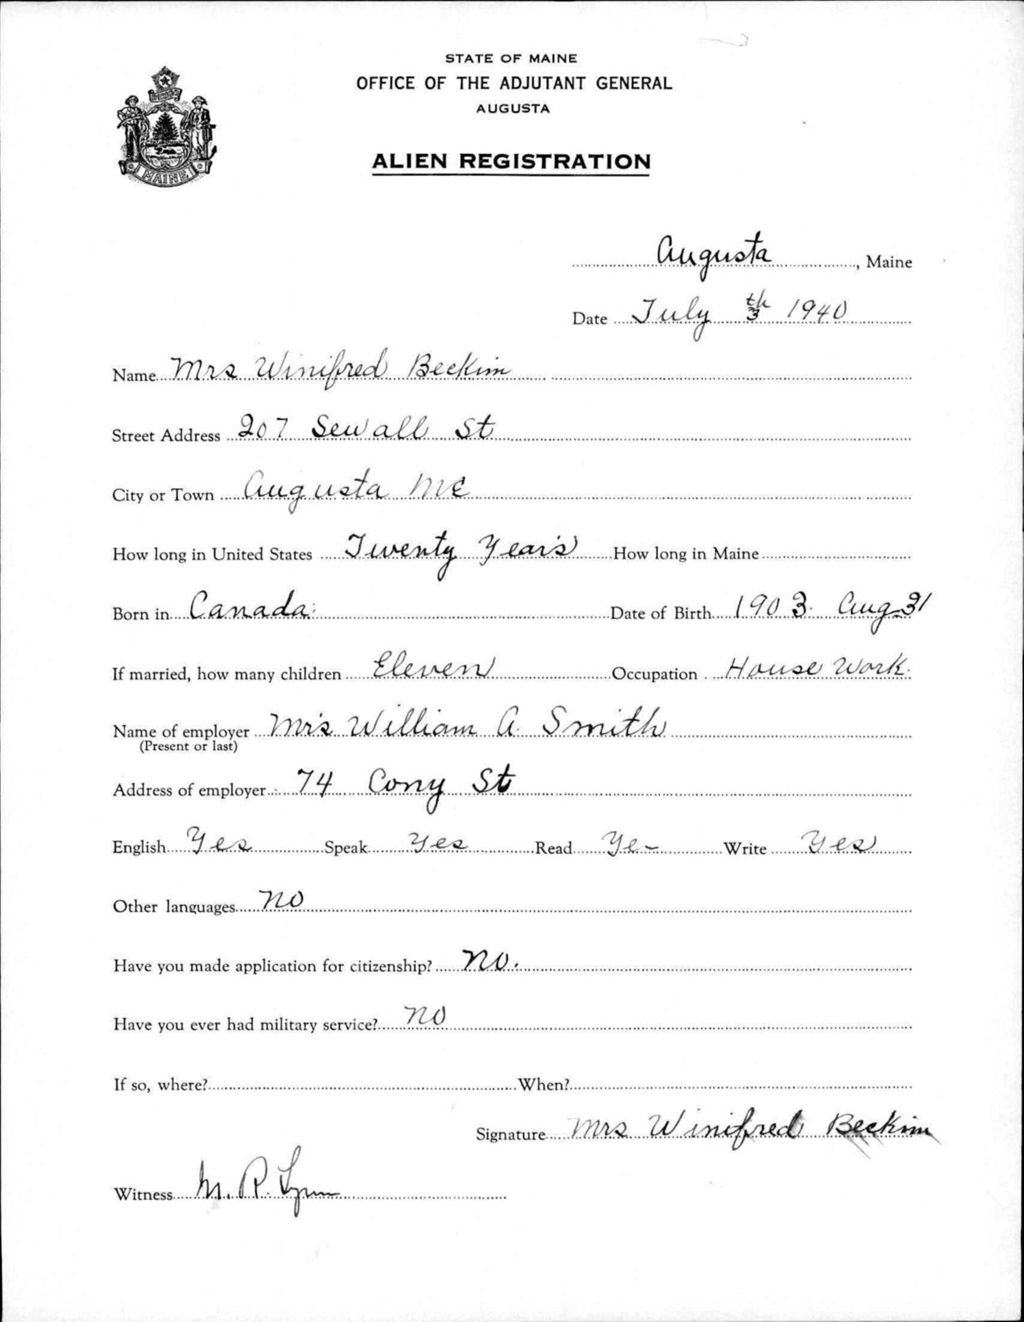 STATE OF MAINE
OFFICE OF THE ADJUTANT GENERAL
AUGUSTA
ALIEN REGISTRATION
MAINE
Augusta, Maine
Date July 3th 1940
Name Mrs Winifred Beckim
Street Address 207 Sewall St
City or Town Augusta Me
How long in United States Twenty Years How long in Maine
Born in Canada Date of Birth 1903 Aug 31
If married, how many children Eleven Occupation House Work.
Name of employer Mrs William A. Smith
(Present or last)
Address of employer 74 Cony St
English Yes Speak Yes Read Ye Write Yes
Other languages no
Have you made application for citizenship? no.
Have you ever had military service? no
If so, where? When?
Signature Mrs Winifred Beckim
Witness M. R. Lynn